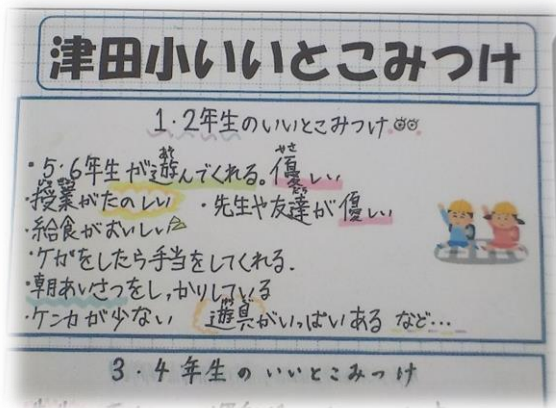 津田小いいとこみつけ
1・2年生のいいとこみつけ
・5・6年生が遊んでくれる。優しい
・授業がたのしい ・先生や友達が優しい
・給食がおいしい
・ケガをしたら手当をしてくれる.
・朝あいさつをしっかりしている
・ケンカが少ない 遊具がいっぱいある など…
3・4年生のいいとこみつけ